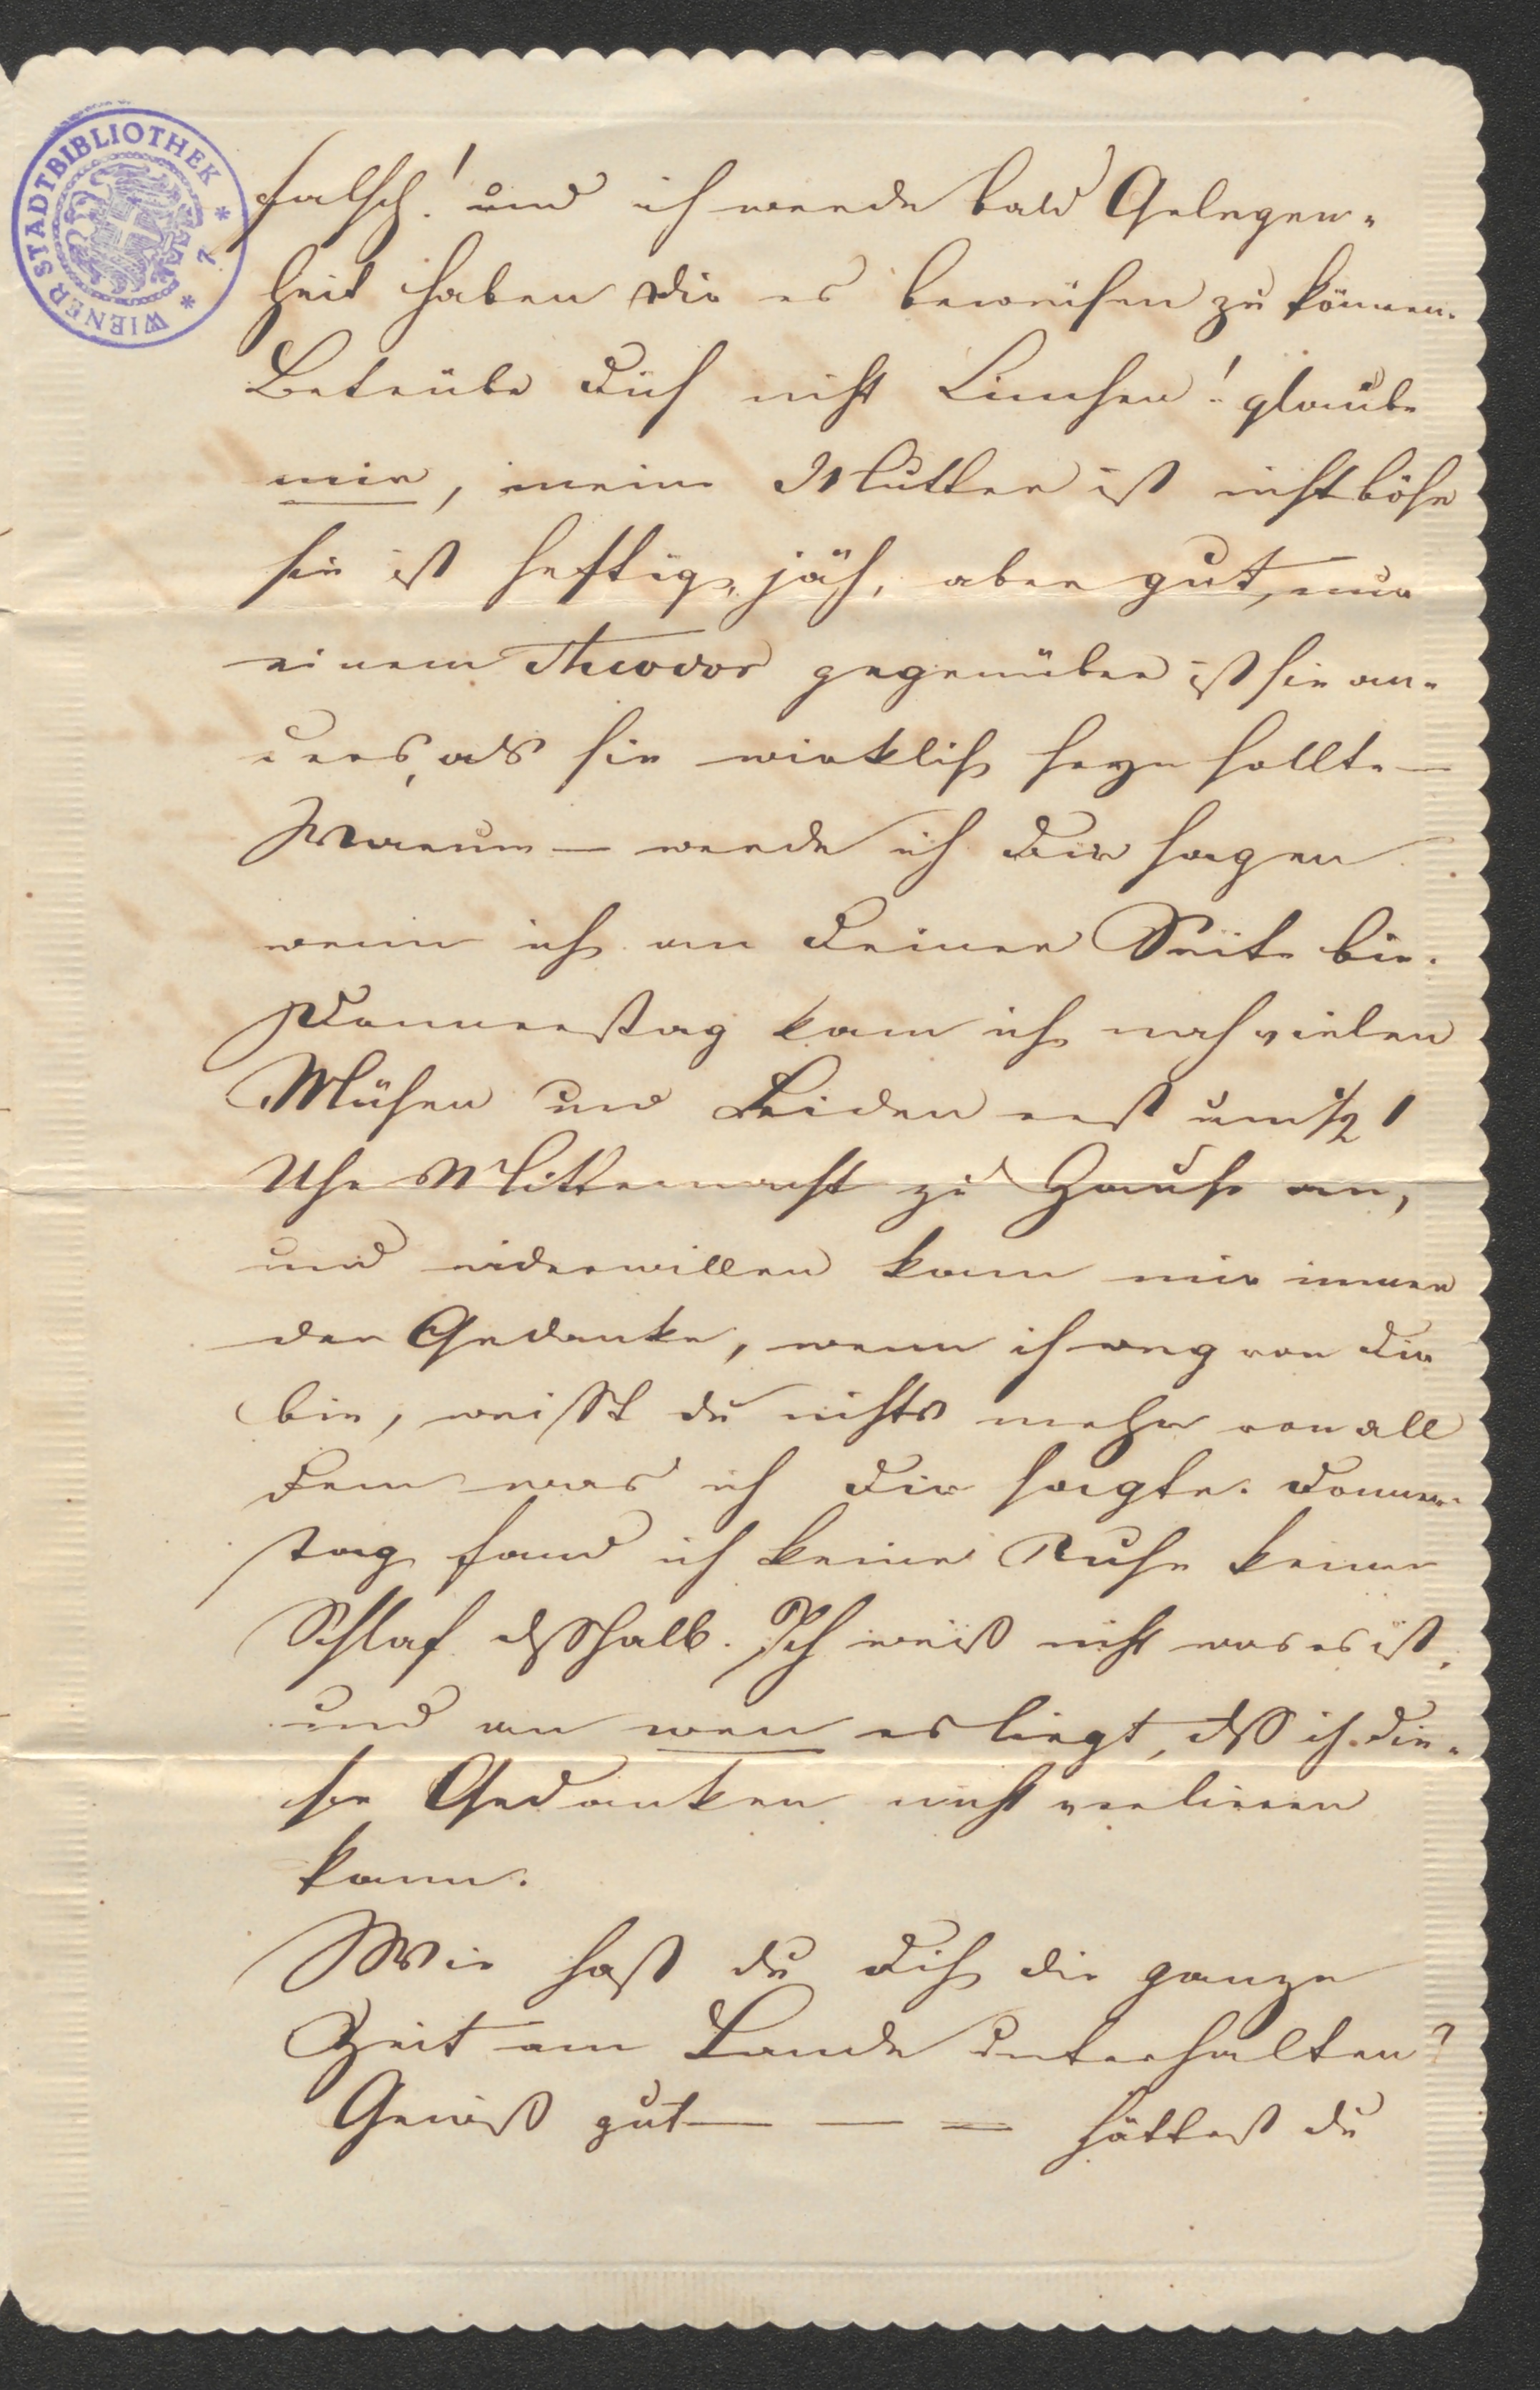 WIENER STADTBIBLIOTHEK * 7 *
falsch! und ich werde bald Gelegen-
heit haben dir es beweisen zu können.
Betrübe dich nicht Linchen! glaube
mir, meine Mutter ist nicht böse
sie ist heftig, jäh, aber gut, nur
einem Theodor gegenüber ist sie an-
ders, als sie wirklich seyn sollte —
Warum — werde ich dir sagen
wenn ich an deiner Seite bin.
Donnerstag kam ich nach vielen
Mühen und Leiden erst um ½ 1
Uhr Mitternacht zu Hause an,
und widerwillen kam mir immer
der Gedanke, wenn ich weg von dir
bin, weisst du nichts mehr von all
dem was ich dir sagte. Donner-
stag fand ich keine Ruhe keinen
Schlaf desshalb. Ich weiß nicht was es ist,
und an wem es liegt, dss ich die-
se Gedanken nicht verlieren
kann.
Wie hast du dich die ganze
Zeit am Lande unterhalten?
Gewiß gut — — = hättest du